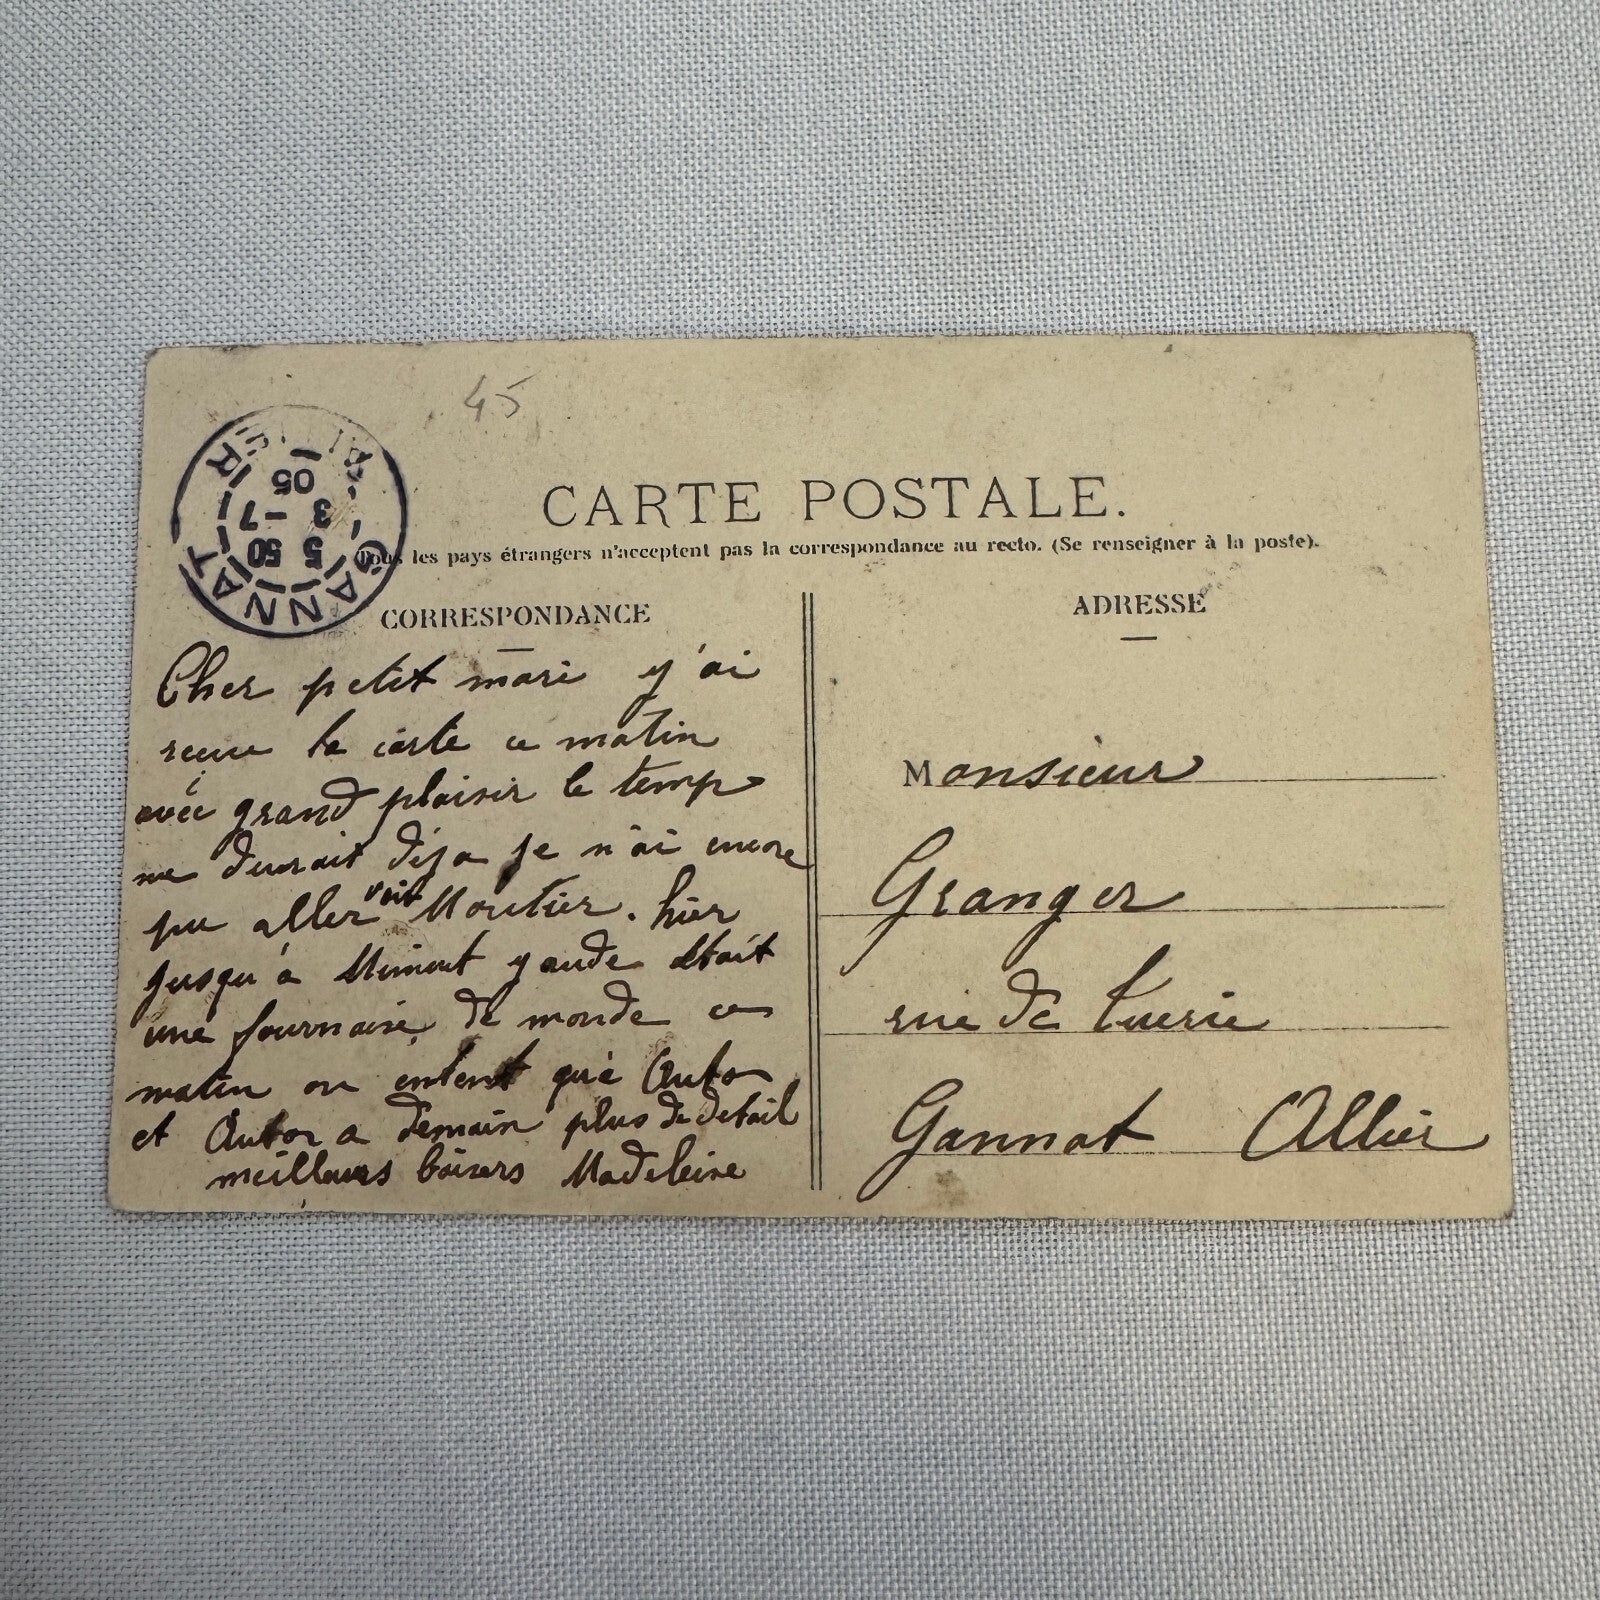 45
GANNAT
5 50
3 - 7
05
CARTE POSTALE.
Tous les pays étrangers n'acceptent pas la correspondance au recto. (Se renseigner à la poste).
CORRESPONDANCE
Cher petit mari j'ai
recue ta carte ce matin
avec grand plaisir le temp
me durait déja je n'ai encore
pu aller voir Moutier. hier
jusqu'a Minuit
une fournaise de monde ce
matin on entent que Auto
et Auto a demain plus de detail
meilleurs baisers Madeleine
ADRESSE
Monsieur
Granger
rue de
Gannat Allier